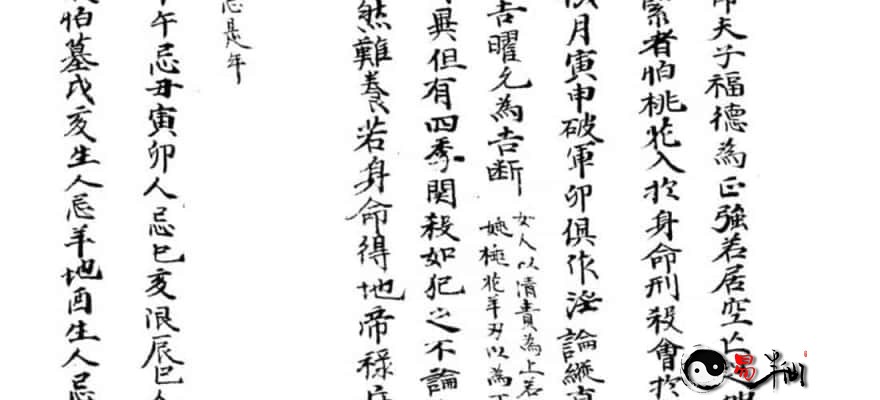 夫子福德為正強若居空亡
者怕桃花入於身命刑殺會於
月寅申破軍卯俱作淫論縱
吉曜允為吉断
女人以清貴為上若
桃花羊刃以為
異但有四季関殺如犯之不論
然難養若身命得地帝祿
忌是年
午忌丑寅卯人忌巳亥限辰巳人
怕墓戌亥生人忌羊地酉生人忌
易半仙